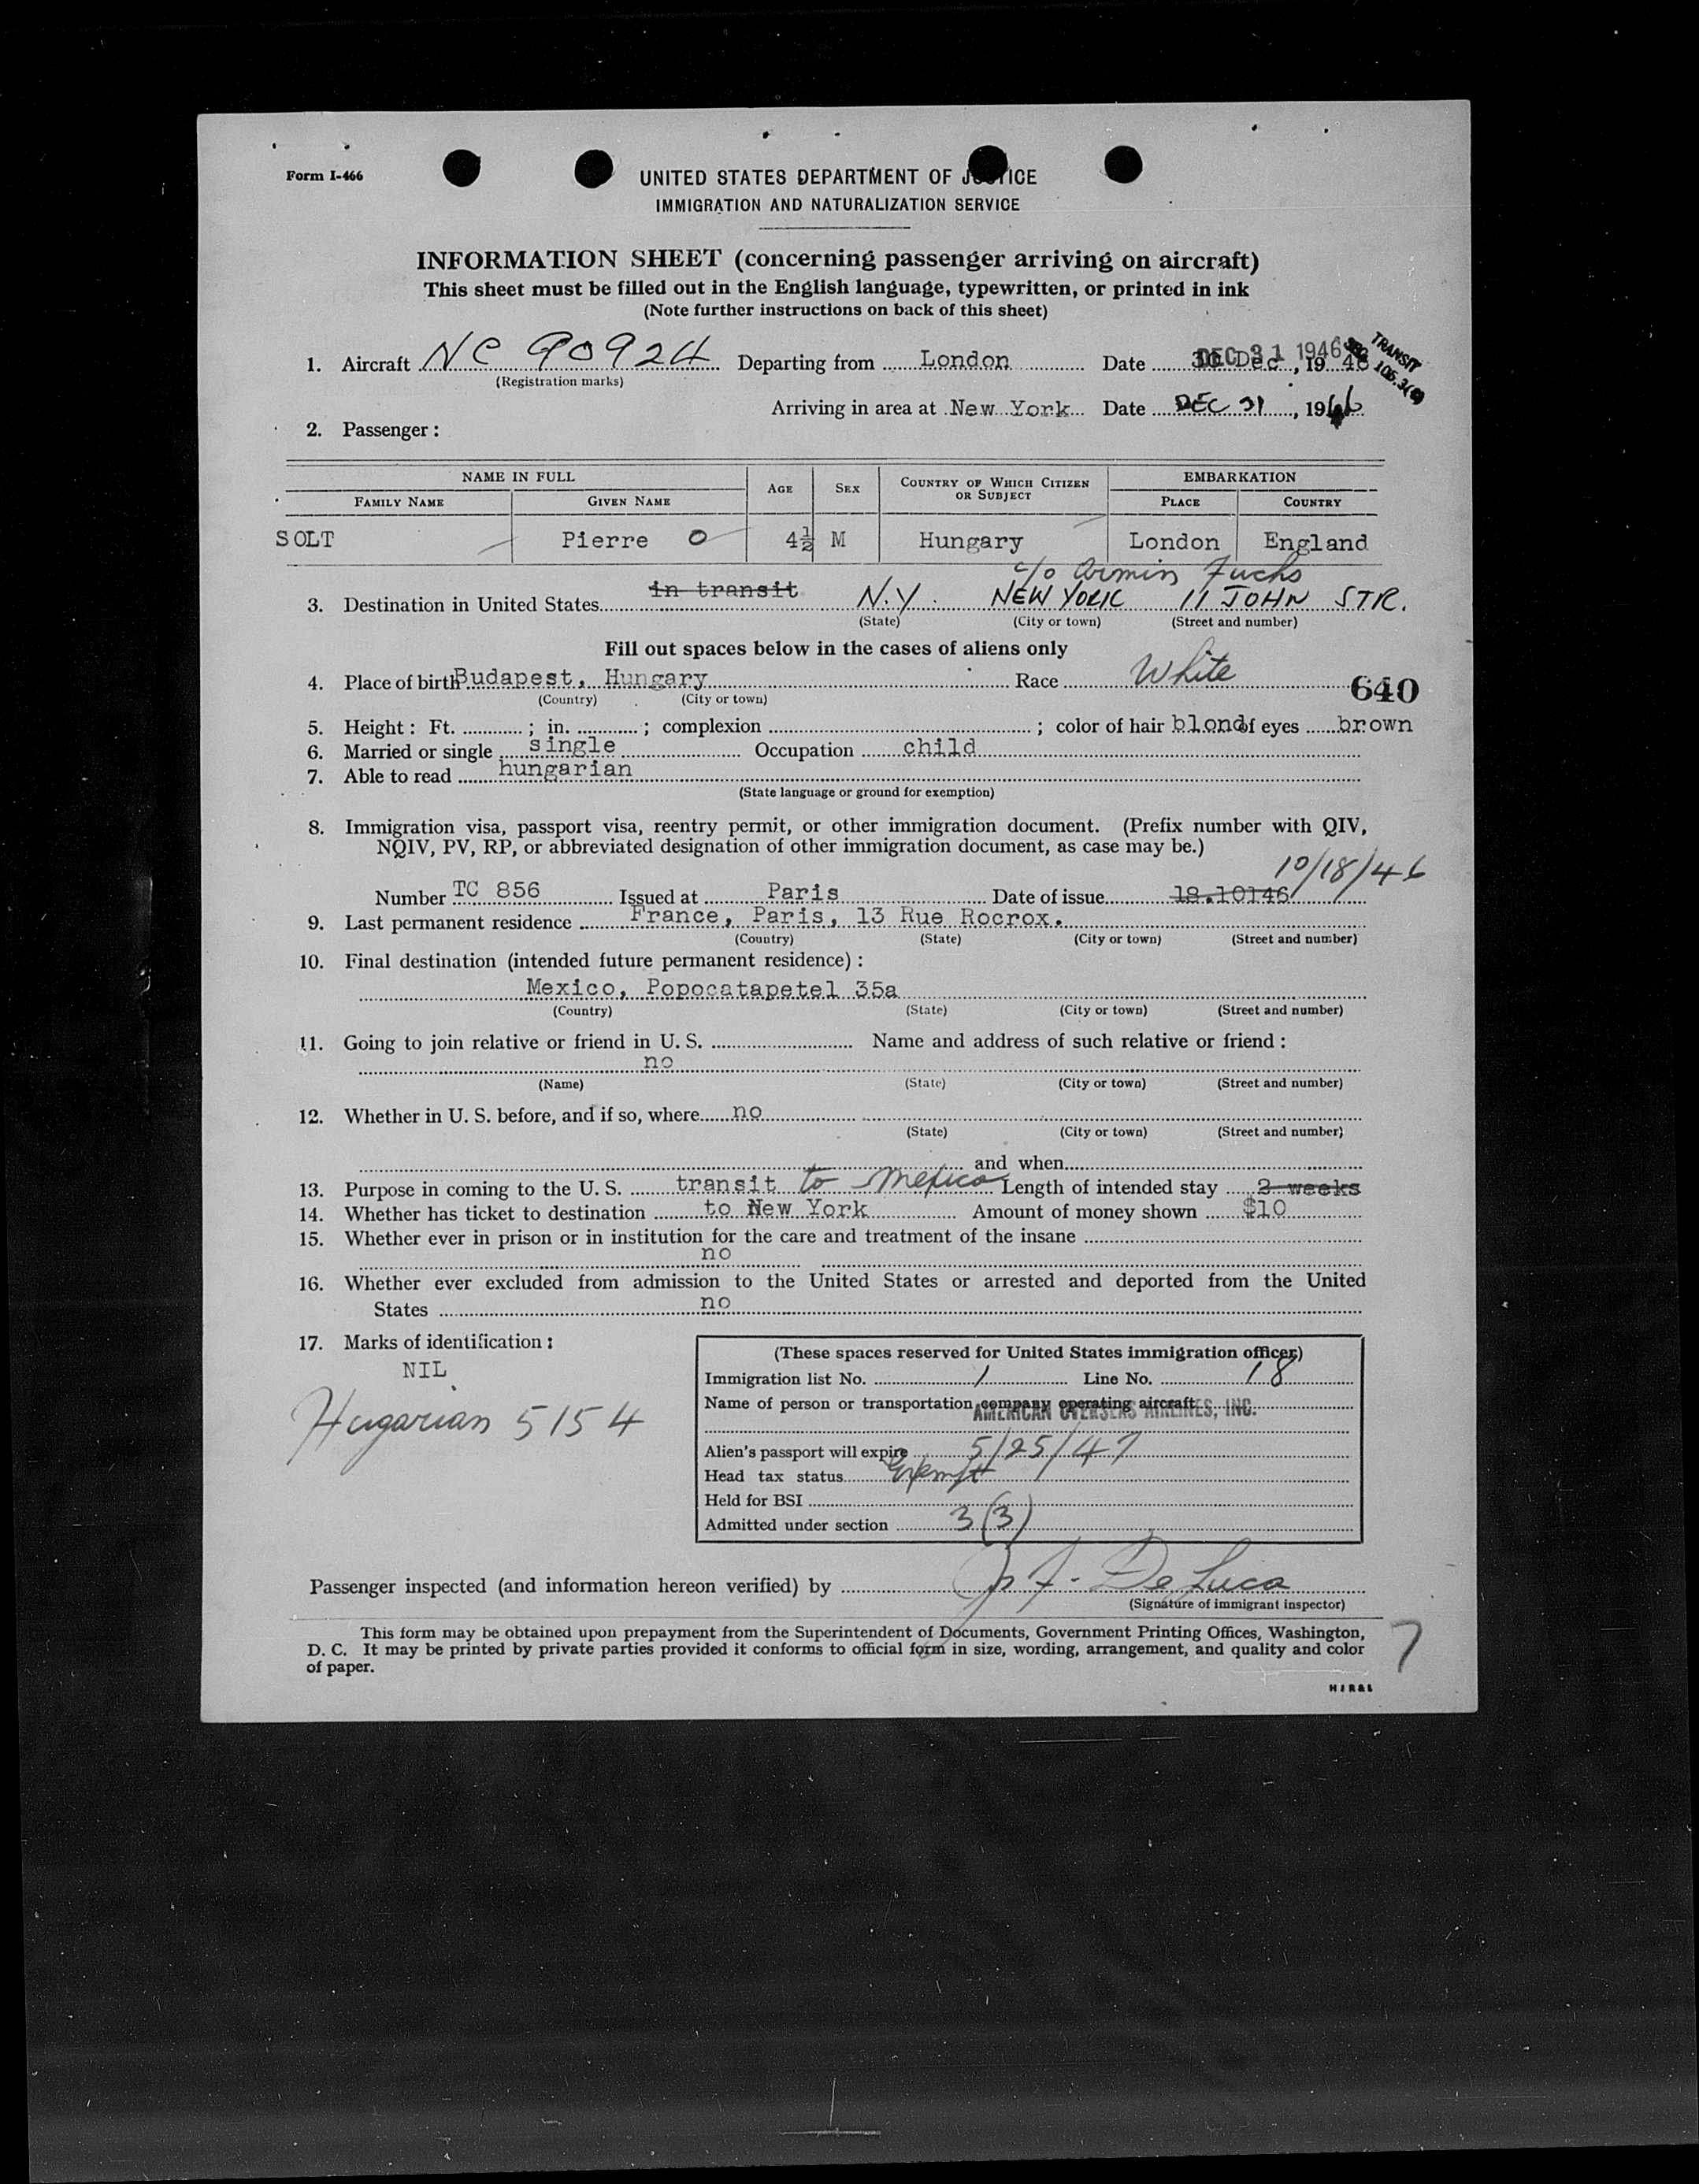 Form I-466
UNITED STATES DEPARTMENT OF JUSTICE
IMMIGRATION AND NATURALIZATION SERVICE
INFORMATION SHEET (concerning passenger arriving on aircraft)
This sheet must be filled out in the English language, typewritten, or printed in ink
(Note further instructions on back of this sheet)
1. Aircraft NC 90924 Departing from London Date 30 Dec , 19 46 DEC 31 1946 TRANSIT SEC 106.3(8)
(Registration marks)
Arriving in area at New York Date DEC 31, 1946
2. Passenger:
NAME IN FULL AGE SEX COUNTRY OF WHICH CITIZEN OR SUBJECT EMBARKATION
FAMILY NAME GIVEN NAME PLACE COUNTRY
SOLT Pierre O 4½ M Hungary London England
c/o Armin Fuchs
3. Destination in United States in transit N.Y. NEW YORK 11 JOHN STR.
(State) (City or town) (Street and number)
Fill out spaces below in the cases of aliens only
4. Place of birth Budapest, Hungary Race White 640
(Country) (City or town)
5. Height: Ft. ; in. ; complexion ; color of hair blond of eyes brown
6. Married or single single Occupation child
7. Able to read hungarian
(State language or ground for exemption)
8. Immigration visa, passport visa, reentry permit, or other immigration document. (Prefix number with QIV,
NQIV, PV, RP, or abbreviated designation of other immigration document, as case may be.)
10/18/46
Number TC 856 Issued at Paris Date of issue 18.10146
9. Last permanent residence France, Paris, 13 Rue Rocrox.
(Country) (State) (City or town) (Street and number)
10. Final destination (intended future permanent residence):
Mexico, Popocatapetel 35a
(Country) (State) (City or town) (Street and number)
11. Going to join relative or friend in U. S. Name and address of such relative or friend:
no
(Name) (State) (City or town) (Street and number)
12. Whether in U. S. before, and if so, where no
(State) (City or town) (Street and number)
and when
13. Purpose in coming to the U. S. transit to Mexico Length of intended stay 2 weeks
14. Whether has ticket to destination to New York Amount of money shown $10
15. Whether ever in prison or in institution for the care and treatment of the insane
no
16. Whether ever excluded from admission to the United States or arrested and deported from the United
States no
17. Marks of identification:
NIL
Hugarian 5154
(These spaces reserved for United States immigration officer)
Immigration list No. 1 Line No. 18
Name of person or transportation company operating aircraft AMERICAN OVERSEAS AIRLINES, INC.
Alien's passport will expire 5/25/47
Head tax status Exempt
Held for BSI
Admitted under section 3(3)
Passenger inspected (and information hereon verified) by De Luca
(Signature of immigrant inspector)
This form may be obtained upon prepayment from the Superintendent of Documents, Government Printing Offices, Washington,
D. C. It may be printed by private parties provided it conforms to official form in size, wording, arrangement, and quality and color
of paper.
7